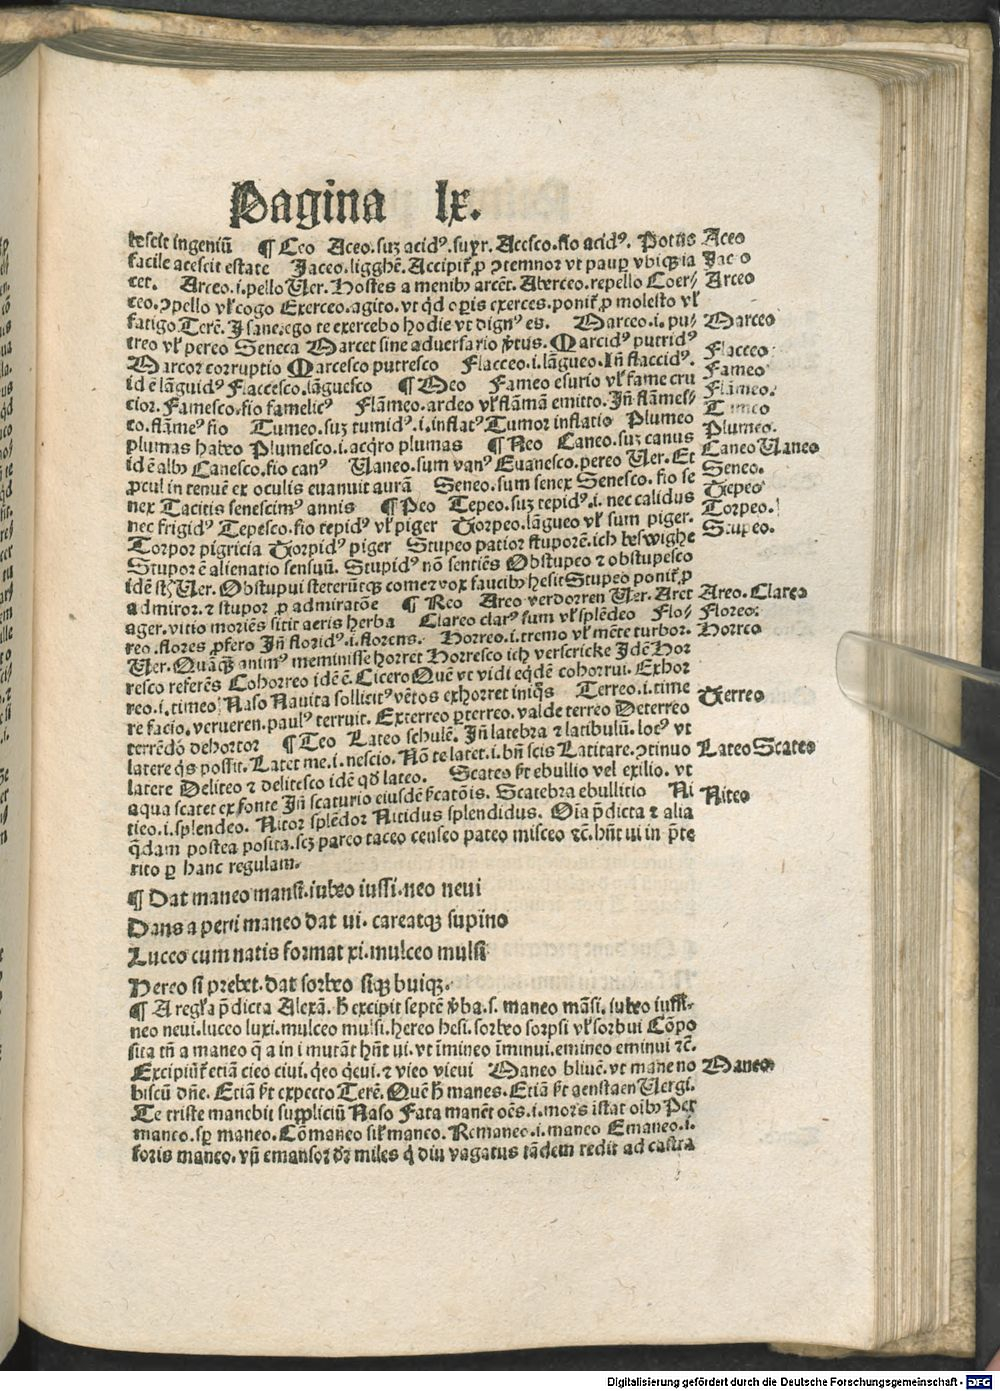 Pagina lx.
bescit ingeniū ¶ Ceo Aceo.suʒ acidꝰ.suyr. Acesco.fio acidꝰ. Potus Aceo
facile acescit estate Jaceo.ligghē. Accipit̄ ꝓ ↄtemnor vt paupꝑ vbiqʒ ia Jaceo
cet. Arceo.i.pello Uer. Hostes a menibꝰ arcēt. Aberceo.repello Coer⸗ Arceo
ceo.ↄpello vl̄ cogo Exerceo.agito.vt qd oꝑis exerces.ponit̄ ꝓ molesto vl̄
fatigo.Terē. J sane.ego te exercebo hodie vt dignꝰ es. Marceo.i.pu⸗ Marceo
treo vl̄ pereo Seneca Marcet sine adversario v̄tus. Marcidꝰ putridꝰ
Marcor corruptio Marcesco putresco Flacceo.i.lāgueo. Jn̄ flaccidꝰ. Flacceo
id ē lāguidꝰ Flaccesco.lāguesco ¶ Meo Fameo esurio vl̄ fame cru Fameo
cior. Famesco.fio famelicꝰ Flāmeo.ardeo vl̄ flāmā emitto. Jn̄ flāmes⸗ Flāmeo.
co.flāmeꝰ fio Tumeo.suʒ tumidꝰ.i.inflatꝰ Tumor inflatio Plumeo Tumeo
plumas habeo Plumesco.i.acqro plumas ¶ Neo Caneo.suʒ canus Plumeo.
id ē albꝰ Canesco.fio canꝰ Vaneo.sum vanꝰ Evanesco.pereo Uer. Et Caneo Vaneo
ꝓcul in tenuē ex oculis evanuit aurā Seneo.sum senex Senesco.fio se Seneo.
nex Tacitis senescimꝰ annis ¶ Peo Tepeo.suʒ tepidꝰ.i.nec calidus Tepeo
nec frigidꝰ Tepesco.fio tepidꝰ vl̄ piger Torpeo.lāgueo vl̄ sum piger. Torpeo.
Torpor pigricia Torpidꝰ piger Stupeo patior stuporē.ich beswighe Stupeo.
Stupor ē alienatio sensuū. Stupidꝰ nō sentiēs Obstupeo ⁊ obstupesco
idē st̄ Uer. Obstupui steterūtqʒ come ⁊ vox faucibꝰ hesit Stupeo ponit̄ ꝓ
admiror.⁊ stupor ꝓ admiratōe ¶ Reo Areo verdorren Uer. Aret Areo. Clareo
ager.vitio moriēs sitit aeris herba Clareo clarꝰ sum vl̄ splēdeo Flo⸗ Floreo:
reo.flores ꝓfero Jn̄ floridꝰ.i.florens. Horreo.i.tremo vl̄ mēte turbor. Horreo
Uer. Quāqʒ animꝰ meminisse horret Horresco ich verscricke Jdē Hor
resco referēs Cohorreo idē ē. Cicero Quē vt vidi eqdē cohorrui. Exhor
reo.i.timeo Naso Navita sollicitꝰ vētos exhorret iniqs Terreo.i.time Terreo
re facio.verueren.paulꝰ terruit. Exterreo ꝑterreo.valde terreo Deterreo
terrēdo dehortor ¶ Teo Lateo schulē. Jn̄ latebra ⁊ latibulū.locꝰ vt
latere qs possit. Latet me.i.nescio. Nō te latet.i.bn̄ scis Latitare.ↄtinuo Lateo Scateo
latere Deliteo ⁊ delitesco idē qd lateo. Scateo s̄t ebullio vel exilio.vt
aqua scatet ex fonte Jn̄ scaturio eiusdē s̄catōis. Scatebra ebullitio Ni Niteo
teo.i.splendeo. Nitor splēdor Nitidus splendidus. Oīa p̄dicta ⁊ alia
qdam postea posita.scʒ pareo taceo censeo pateo misceo ⁊c. hn̄t ui in p̄te
rito ꝑ hanc regulam.
¶ Dat maneo mansi.iubeo iussi.neo nevi
Dans a perti maneo dat ui. careatqʒ supino
Luceo cum natis format xi.mulceo mulsi
Hereo si prebet.dat sorbeo siqʒ buiqʒ.
¶ A regl̄a p̄dicta Alexā. h̄ excipit septē v̄ba.s. maneo māsi. iubeo iussi.
neo nevi.luceo luxi.mulceo mulsi.hereo hesi.sorbeo sorpsi vl̄ sorbui Cōpo
sita tn̄ a maneo q̄ a in i mutāt hn̄t ui.vt īmineo īminui.emineo eminui ⁊c.
Excipiūt̄ etiā cieo civi.q̄eo q̄evi.⁊ vieo vievi Maneo blivē.vt mane no Maneo
biscū dn̄e. Etiā s̄t expecto Terē. Quē h̄ manes. Etiā s̄t aenstaen Uergi.
Te triste manebit suppliciū Naso Fata manēt oēs.i.mors istat oibꝰ Per
maneo.sꝑ maneo. Cōmaneo sil̄ maneo. Remaneo.i.maneo Emaneo.i.
foris maneo.vn̄ emansor dr̄ miles q̄ diu vagatus tādem redit ad castra
Digitalisierung gefördert durch die Deutsche Forschungsgemeinschaft - DFG